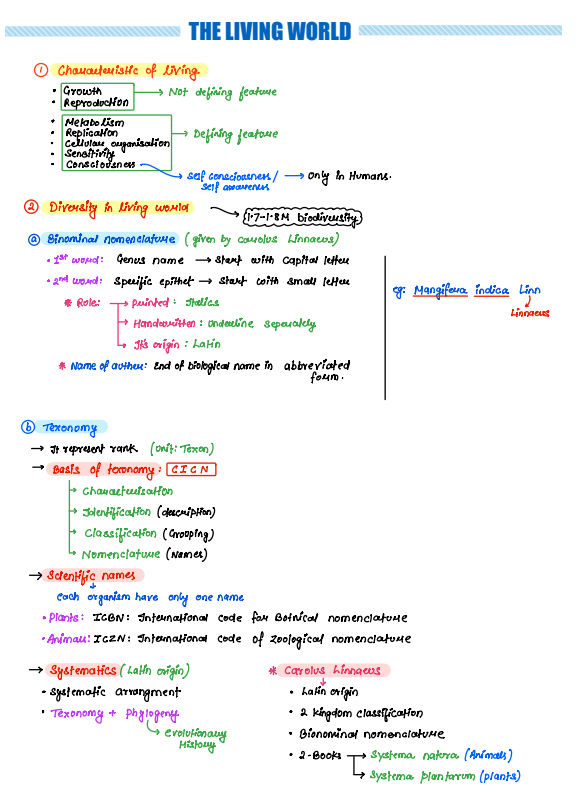 THE LIVING WORLD
① Characteristic of living
• Growth
• Reproduction → Not defining feature
• Metabolism
• Replication
• Cellular organisation → Defining feature
• Sensitivity
• Consciousness → Self consciousness/ self awareness → Only in Humans.
② Diversity in living world → 1.7-1.8M biodiversity
ⓐ Binominal nomenclature (given by carolus Linnaeus)
• 1st word: Genus name → Start with Capital letter
• 2nd word: Specific epithet → Start with small letter
* Role: → printed: Italics
→ Handwritten: underline seperately
→ It's origin: Latin
* Name of author: End of biological name in abbreviated form.
eg: Mangifera indica Linn
Linnaeus
ⓑ Texonomy
→ It represent rank (Unit: Texon)
→ Basis of texonomy: CICN
→ Characterisation
→ Identification (description)
→ Classification (Grouping)
→ Nomenclature (Names)
→ Scientific names
each organism have only one name
• Plants: ICBN: International code for Botnical nomenclature
• Animals: ICZN: International code of Zoological nomenclature
→ Systematics (Latin origin)
• Systematic arrangment
• Texonomy + phylogeny
→ evolutionary History
* Carolus Linnaeus
• Latin origin
• 2 kingdom classification
• Bionominal nomenclature
• 2-Books → Systema natura (Animals)
→ Systema plantarum (plants)